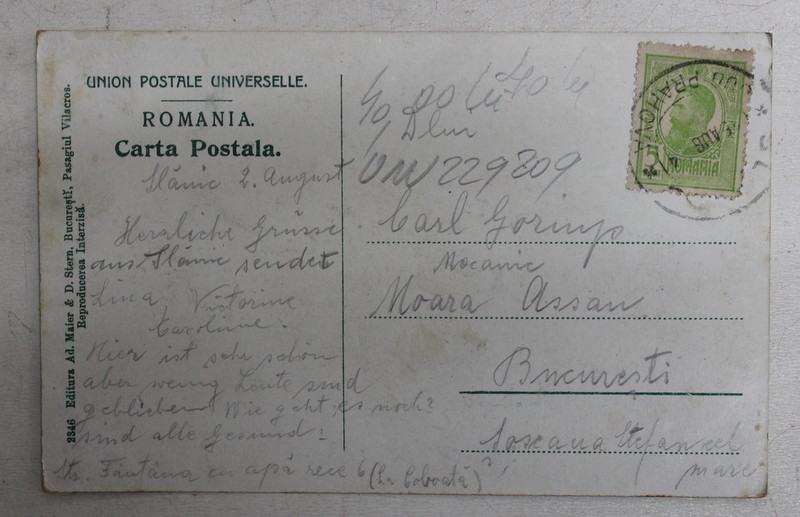 UNION POSTALE UNIVERSELLE.
ROMANIA.
Carta Postala.
2346 Editura Ad. Maier & D. Stern, Bucureştĭ, Pasagiul Vilacros.
Reproducerea Interzisă.
Slănic 2. August
Herzliche Grüsse
aus Slănic sendet
Lina Victorine
Caroline.
Hier ist sehr schön
aber wenig Leute sind
geblieben Wie geht es noch?
sind alle Gesund?
Str. Fântâna cu apă rece 6 (La Coboată)
Dlui
229209
Carl Gorinp
Mecanic
Moara Assan
Bucureşti
Soseaua Ştefan cel
mare
PRAHOVA
AUG
5
ROMANIA